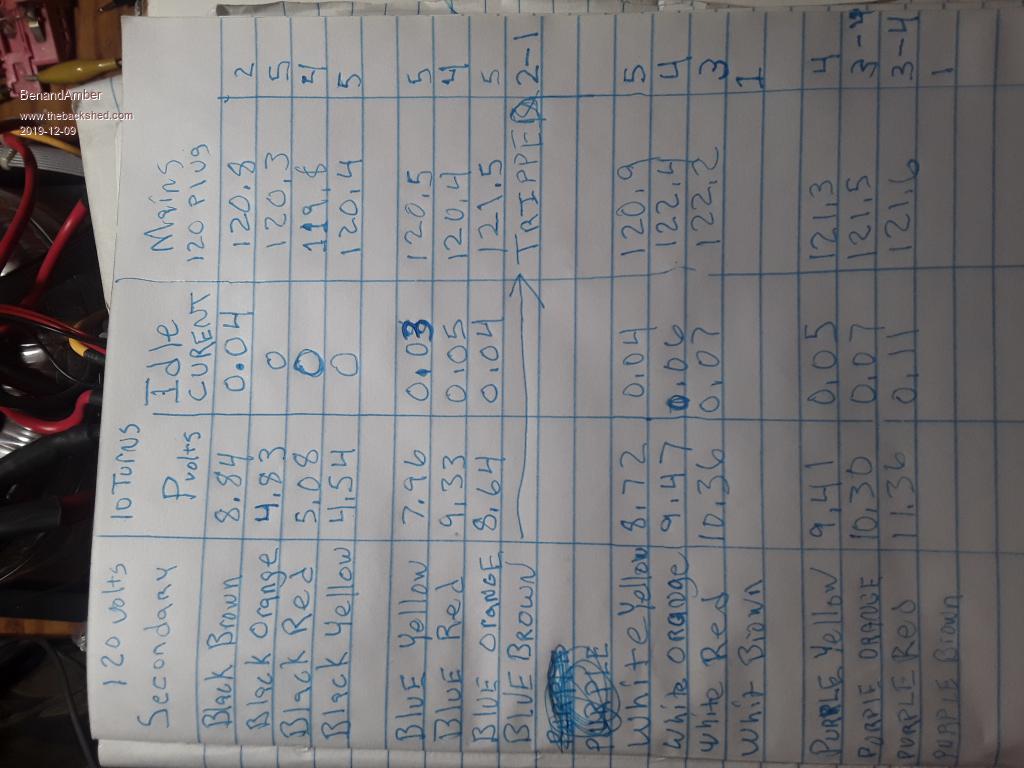 BenandAmber
www.thebackshed.com
2019-12-09
120 volts 10 Turns
Secondary Pvolts Idle CURENT Mains 120 Plug
Black Brown 8.84 0.04 120.8 2
Black Orange 4.83 0 120.3 5
Black Red 5.08 0 119.8 4
Black Yellow 4.54 0 120.4 5
BLUE Yellow 7.96 0.03 120.5 5
BLUE Red 9.33 0.05 120.4 4
BLUE ORANGE 8.64 0.04 121.5 5
BLUE BROWN TRIPPED 2-1
PURPLE
White Yellow 8.72 0.04 120.9 5
White ORANGE 9.47 0.06 122.4 4
White Red 10.36 0.07 122.2 3
Whit Brown 1
PURPLE Yellow 9.41 0.05 121.3 4
PURPLE ORANGE 10.30 0.07 121.5 3-4
PURPLE Red 11.36 0.11 121.6 3-4
PURPLE Brown 1